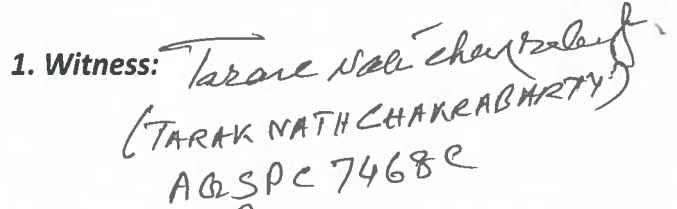 1. Witness: Tarak Nath Chakrabarty
(TARAK NATH CHAKRABARTY)
AQSPC 7468C